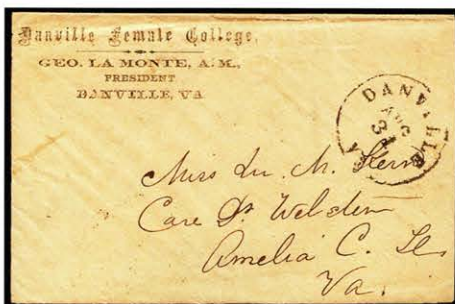 Danville Female College,
GEO. LA MONTE, A.M.,
PRESIDENT
DANVILLE, VA
DANVILLE
AUG
31
VA
Miss Lu. M.
Care Dr
Amelia C. 
Va.